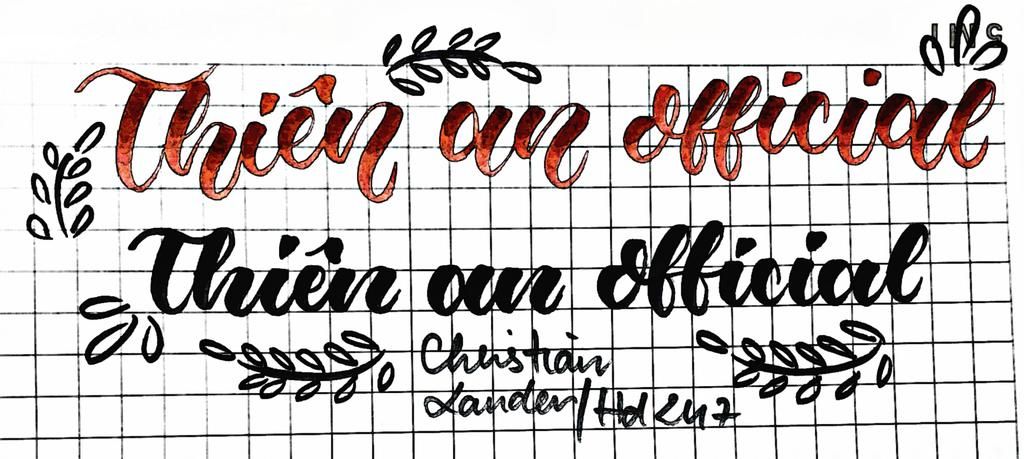 Thiên an official
Thiên an official
Christian
Lander/Hd247